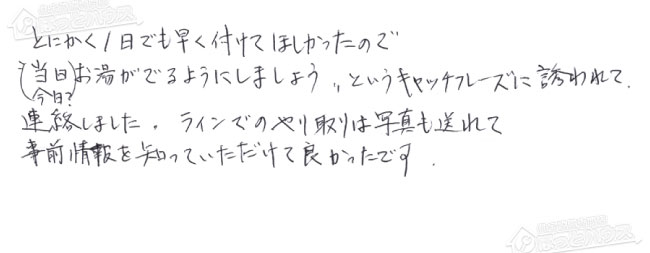 とにかく1日でも早く付けてほしかったので
〝(当日)お湯がでるようにしましょう〟というキャッチフレーズに誘われて.
今日?
連絡しました。ラインでのやり取りは写真も送れて
事前情報を知っていただけて良かったです.